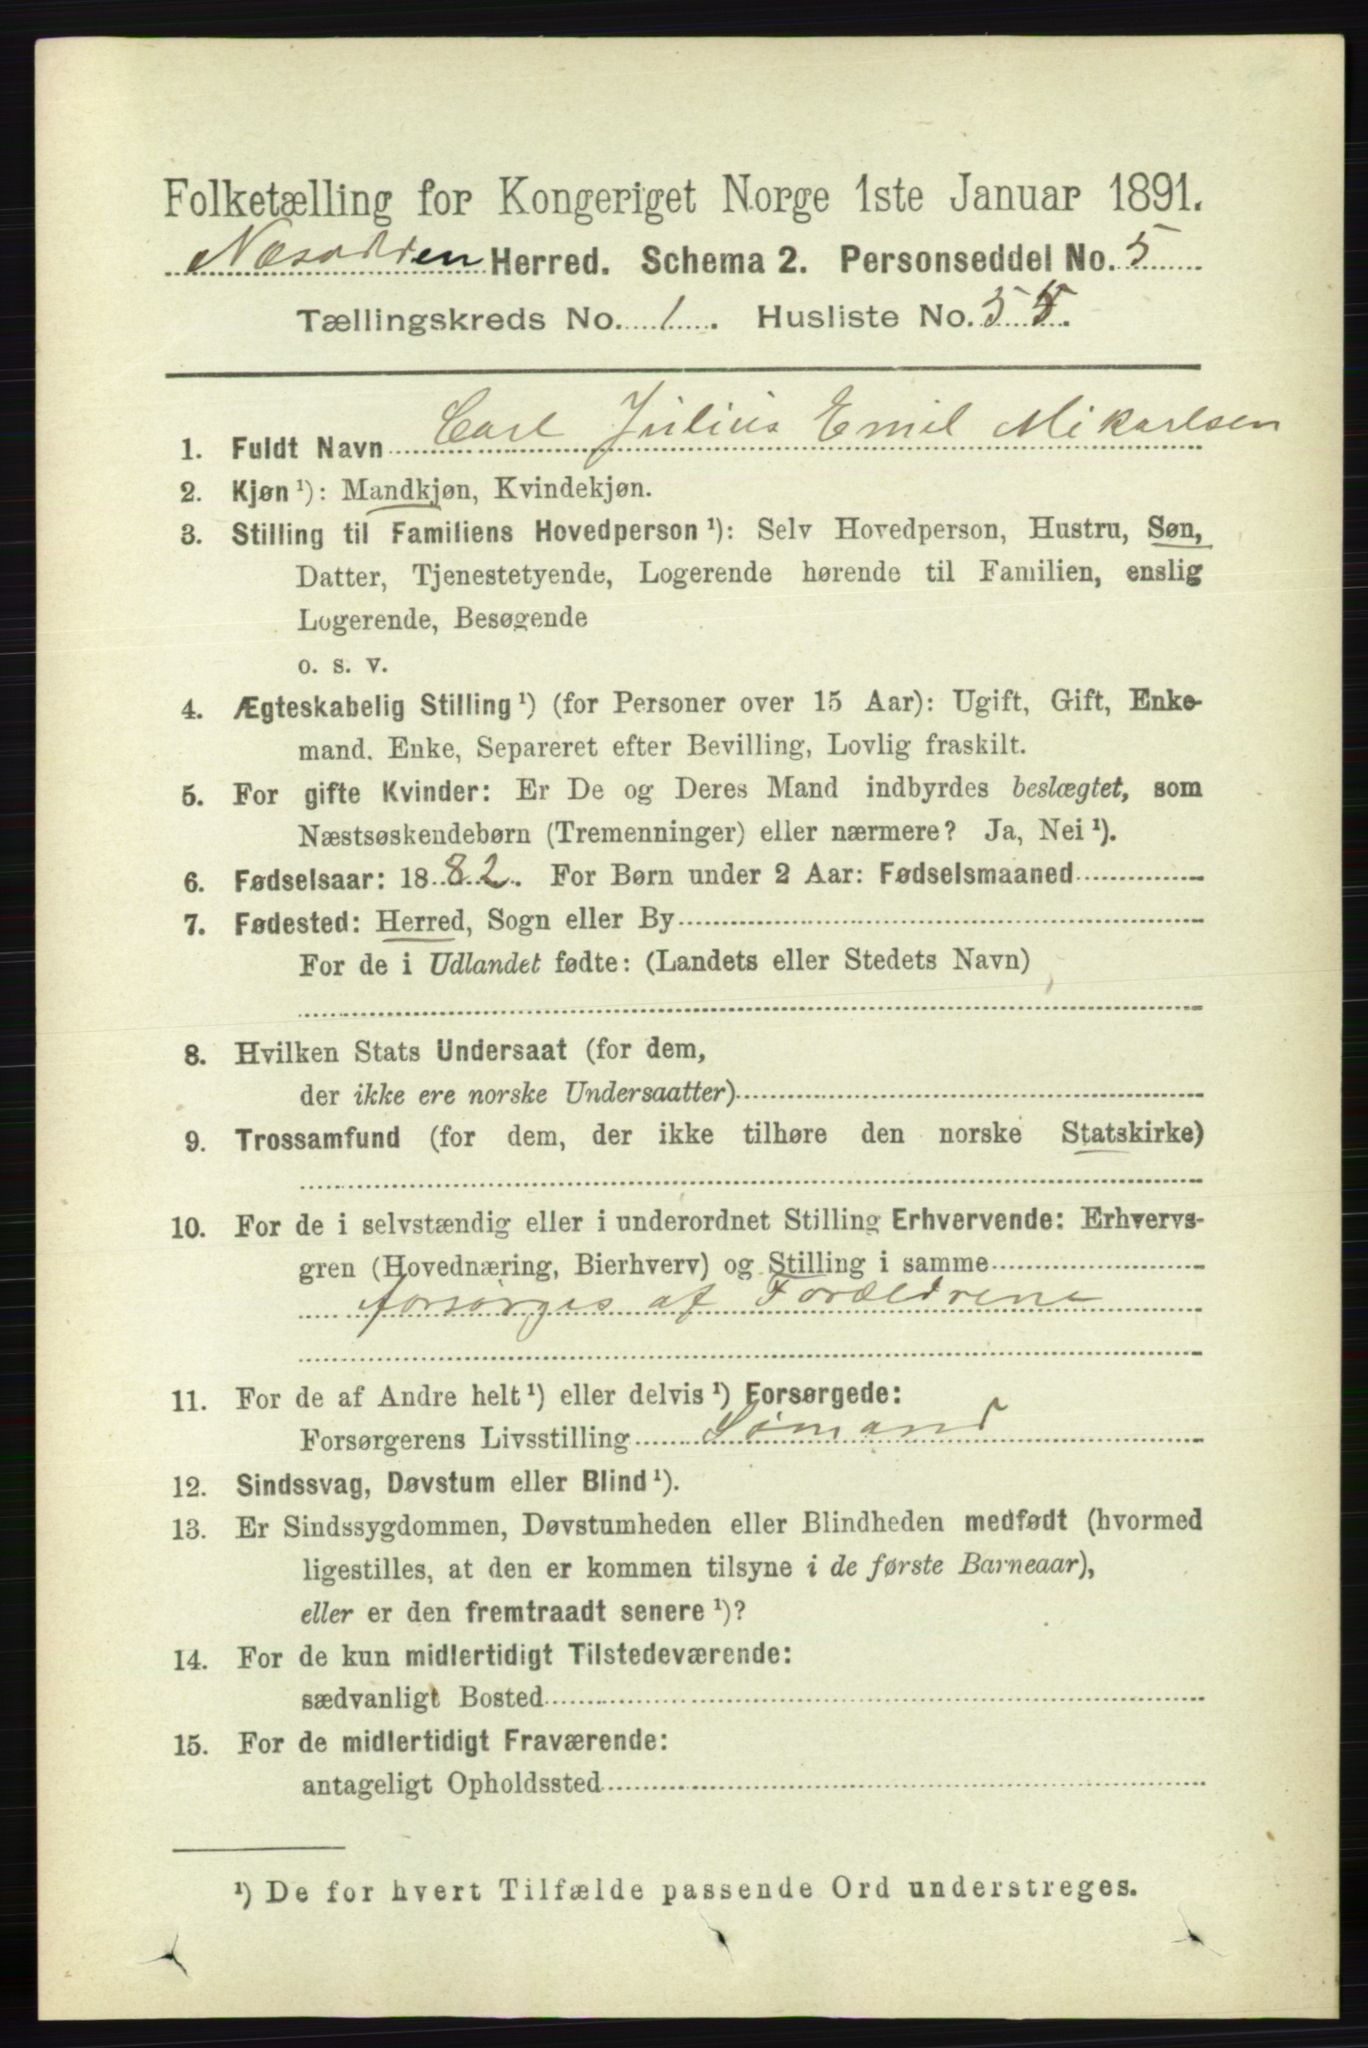 Folketælling for Kongeriget Norge 1ste Januar 1891.
Næsodden Herred. Schema 2. Personseddel No. 5
Tællingskreds No. 1. Husliste No. 55.
1. Fuldt Navn Carl Julius Emil Mikarlsen
2. Kjøn ¹): Mandkjøn, Kvindekjøn.
3. Stilling til Familiens Hovedperson ¹): Selv Hovedperson, Hustru, Søn,
Datter, Tjenestetyende, Logerende hørende til Familien, enslig
Logerende, Besøgende
o. s. v.
4. Ægteskabelig Stilling ¹) (for Personer over 15 Aar): Ugift, Gift, Enke-
mand. Enke, Separeret efter Bevilling, Lovlig fraskilt.
5. For gifte Kvinder: Er De og Deres Mand indbyrdes beslægtet, som
Næstsøskendebørn (Tremenninger) eller nærmere? Ja, Nei ¹).
6. Fødselsaar: 1882. For Børn under 2 Aar: Fødselsmaaned
7. Fødested: Herred, Sogn eller By
For de i Udlandet fødte: (Landets eller Stedets Navn)
8. Hvilken Stats Undersaat (for dem,
der ikke ere norske Undersaatter)
9. Trossamfund (for dem, der ikke tilhøre den norske Statskirke)
10. For de i selvstændig eller i underordnet Stilling Erhvervende: Erhvervs-
gren (Hovednæring, Bierhverv) og Stilling i samme
forsørges af Forældrene
11. For de af Andre helt ¹) eller delvis ¹) Forsørgede:
Forsørgerens Livsstilling Sømand
12. Sindssvag, Døvstum eller Blind ¹).
13. Er Sindssygdommen, Døvstumheden eller Blindheden medfødt (hvormed
ligestilles, at den er kommen tilsyne i de første Barneaar),
eller er den fremtraadt senere ¹)?
14. For de kun midlertidigt Tilstedeværende:
sædvanligt Bosted
15. For de midlertidigt Fraværende:
antageligt Opholdssted
¹) De for hvert Tilfælde passende Ord understreges.